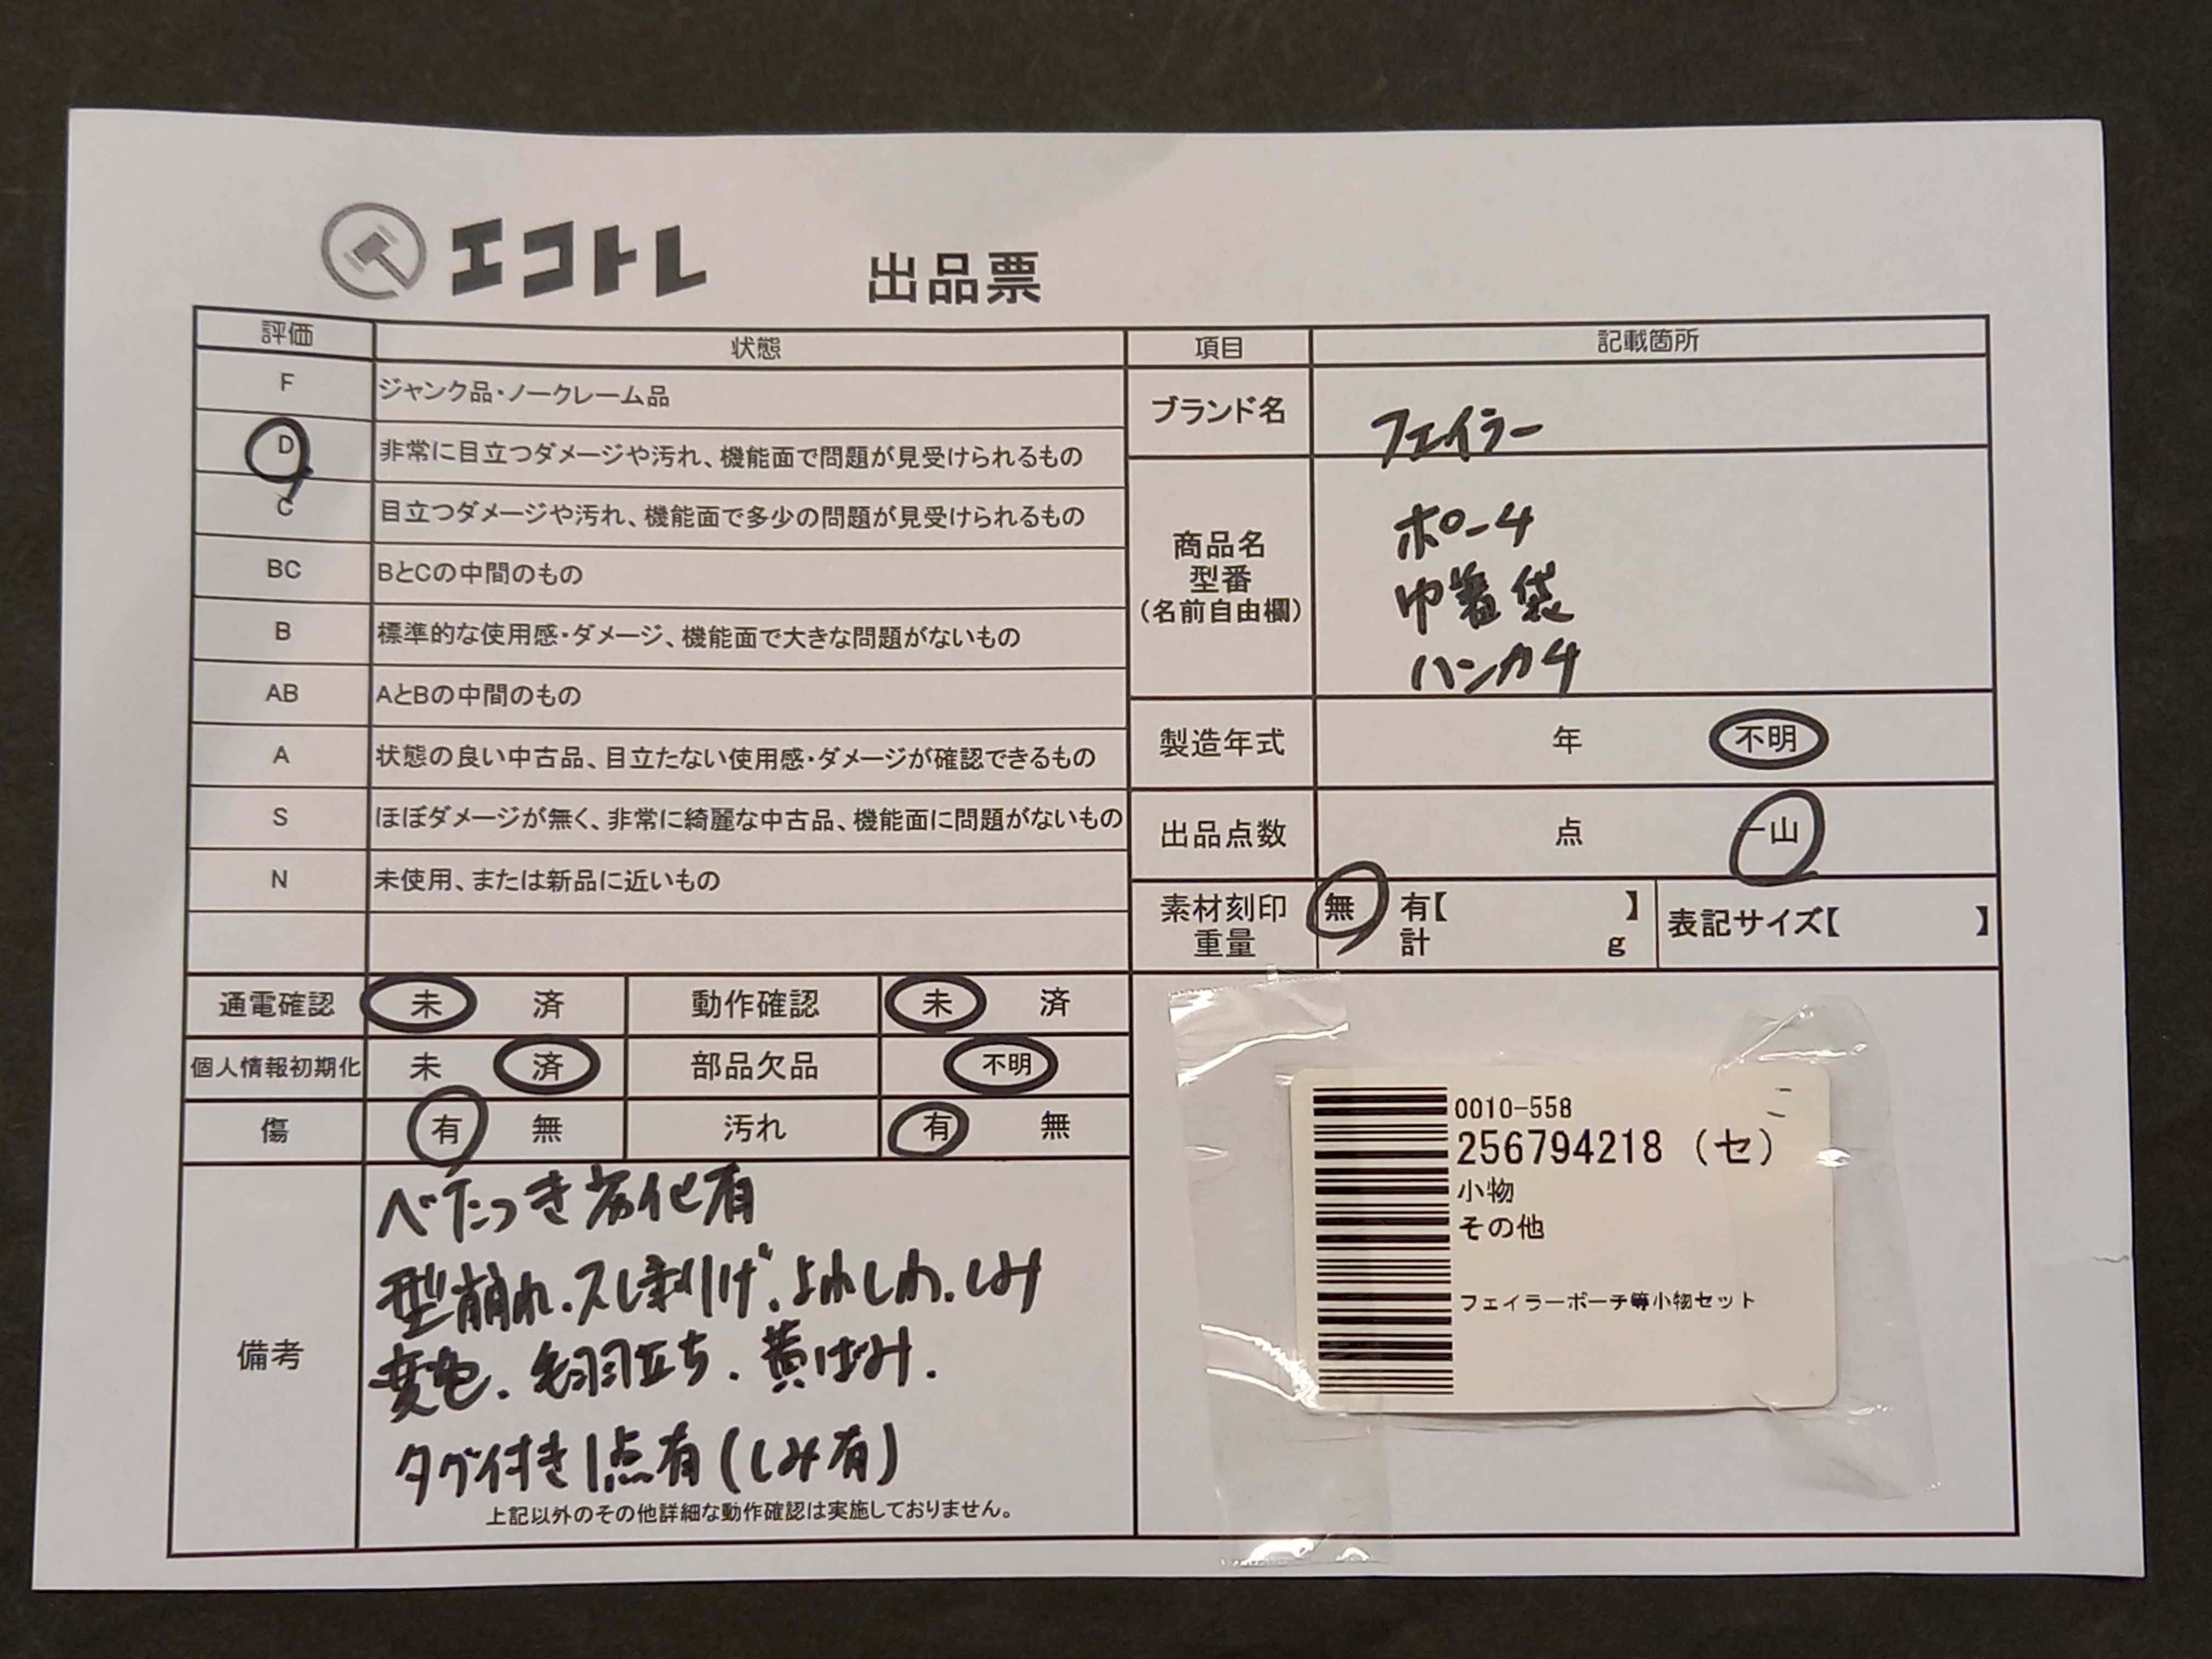 エコトレ 出品票
評価 状態
F ジャンク品・ノークレーム品
D 非常に目立つダメージや汚れ、機能面で問題が見受けられるもの
C 目立つダメージや汚れ、機能面で多少の問題が見受けられるもの
BC BとCの中間のもの
B 標準的な使用感・ダメージ、機能面で大きな問題がないもの
AB AとBの中間のもの
A 状態の良い中古品、目立たない使用感・ダメージが確認できるもの
S ほぼダメージが無く、非常に綺麗な中古品、機能面に問題がないもの
N 未使用、または新品に近いもの
項目 記載箇所
ブランド名 フェイラー
商品名
型番
(名前自由欄)
ポーチ
巾着袋
ハンカチ
製造年式 年 不明
出品点数 点 一山
素材刻印 無 有【 】
重量 計 g
表記サイズ【 】
通電確認 未 済 動作確認 未 済
個人情報初期化 未 済 部品欠品 不明
傷 有 無 汚れ 有 無
備考
べたつき劣化有
型崩れ.スレ剥げ.よれしわ.しみ
変色.毛羽立ち.黄ばみ.
タグ付き1点有(しみ有)
上記以外のその他詳細な動作確認は実施しておりません。
0010-558
256794218 (セ)
小物
その他
フェイラーポーチ等小物セット